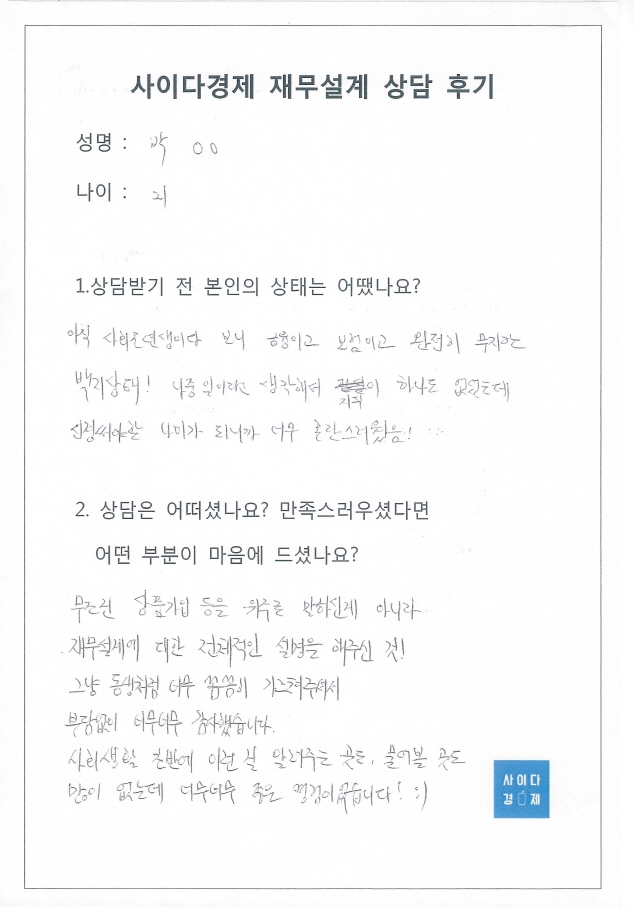 사이다경제 재무설계 상담 후기
성명 : 박 ㅇㅇ
나이 : 21
1.상담받기 전 본인의 상태는 어땠나요?
아직 사회초년생이다 보니 금융이고 보험이고 완전히 무지한
백지상태! 나중일이라고 생각해서 지식이 하나도 없었는데
신경써야할 나이가 되니까 너무 혼란스러웠음!
2. 상담은 어떠셨나요? 만족스러우셨다면
어떤 부분이 마음에 드셨나요?
무조건 상품가입 등을 위주로 말하신게 아니라
재무설계에 대한 전체적인 설명을 해주신 것!
그냥 동생처럼 너무 꼼꼼히 가르쳐주셔서
부담없이 너무너무 감사했습니다.
사회생활 초반에 이런 걸 알려주는 곳도, 물어볼 곳도
많이 없는데 너무너무 좋은 경험이였습니다! :)
사이다
경제